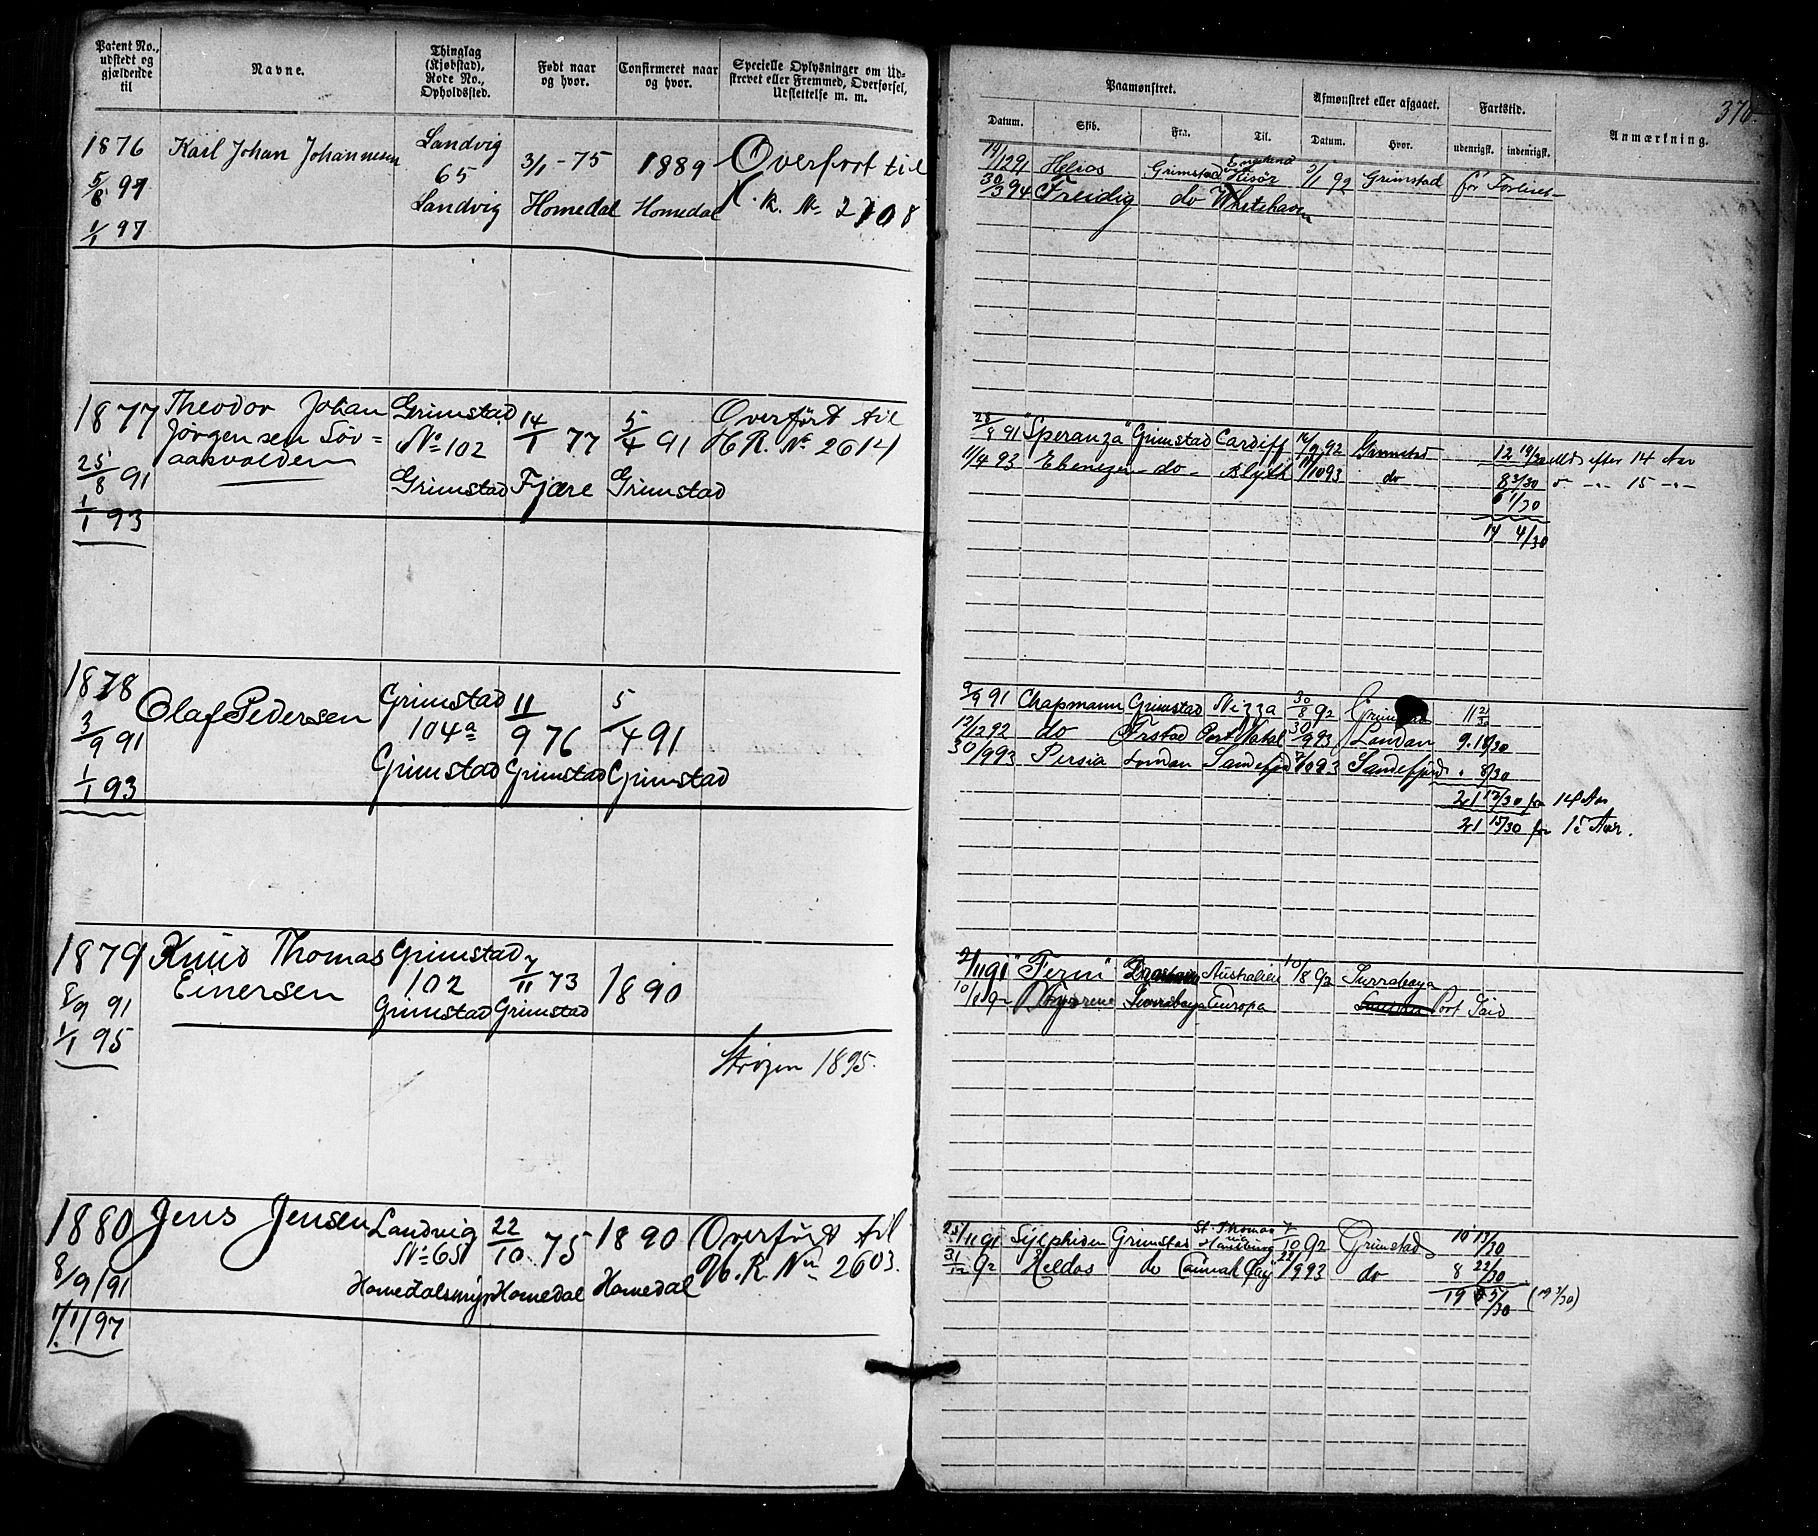 Patent No., udstedt og gjældende til
Navne.
Thinglag (Kjøbstad), Rode No., Opholdssted.
Født naar og hvor.
Confirmeret naar og hvor.
Specielle Oplysninger om Udstrevet eller Fremmed, Overførsel, Udslettelse m. m.
Paamønstret.
Afmønstret eller afgaaet.
Fartstid.
Anmærkning.
370
Datum.
Skib.
Fra.
Til.
Datum.
Hvor.
udenrigsk.
indenrigsk.
1876
5/8 97
1/1 97
Karl Johan Johannesen
Landvig
65
Landvig
3/1 - 75
Homedal
1889
Homedal
Overført til
H. R. No 2708
14/12 91 Helios Grimstad 5/1 92 Grimstad før Forliset
30/3 94 Freidig do Whitehaven
1877
25/8 91
1/1 93
Theodor Johan
Jörgensen Löv=
aasvolden
Grimstad
No 102
Grimstad
14/1 77
Fjære
5/4 91
Grimstad
Overført til
H R. No 2614
28/8 91 "Speranza" Grimstad Cardiff 14/9 92 Grimstad 12 19/30 Mdr efter 14 Aar
11/4 93 Ebenezer - do - Blyth 11/10 93 do 8 3/30 " 15 "
6 1/30
14 4/30
1878
3/9 91
1/1 93
Olaf Pedersen
Grimstad
104a
Grimstad
11/9 76
Grimstad
5/4 91
Grimstad
9/9 91 Chapmann Grimstad Nizza 30/8 92 Grimstad 11 21/30
12/12 92 do Port Natal 30/9 93 London
30/9 93 Persia London Sandefjord Sandefjord 8/30
21 17/30 før 14 Aar
21 15/30 før 15 Aar.
1879
8/9 91
1/1 95
Knud Thomas
Einersen
Grimstad
102
Grimstad
7/11 73
Grimstad
1890
Strøgen 1895.
2/11 91 "Ferm" Australien 10/8 92 Surrabaya
Surrabaya Europa Port Said
1880
8/9/91
1/1/97
Jens Jensen
Landvig
No 65
Homedalsmyr
22/10 75
Homedal
1890
Homedal
Overført til
H. R. No 2603.
25/11 91 Sylphiden Grimstad St. Thomas via Hamburg 7/10 92 Grimstad 10 13/30
31/12 92 Heldos do 22/9 93 do 8 22/30
19 5/30